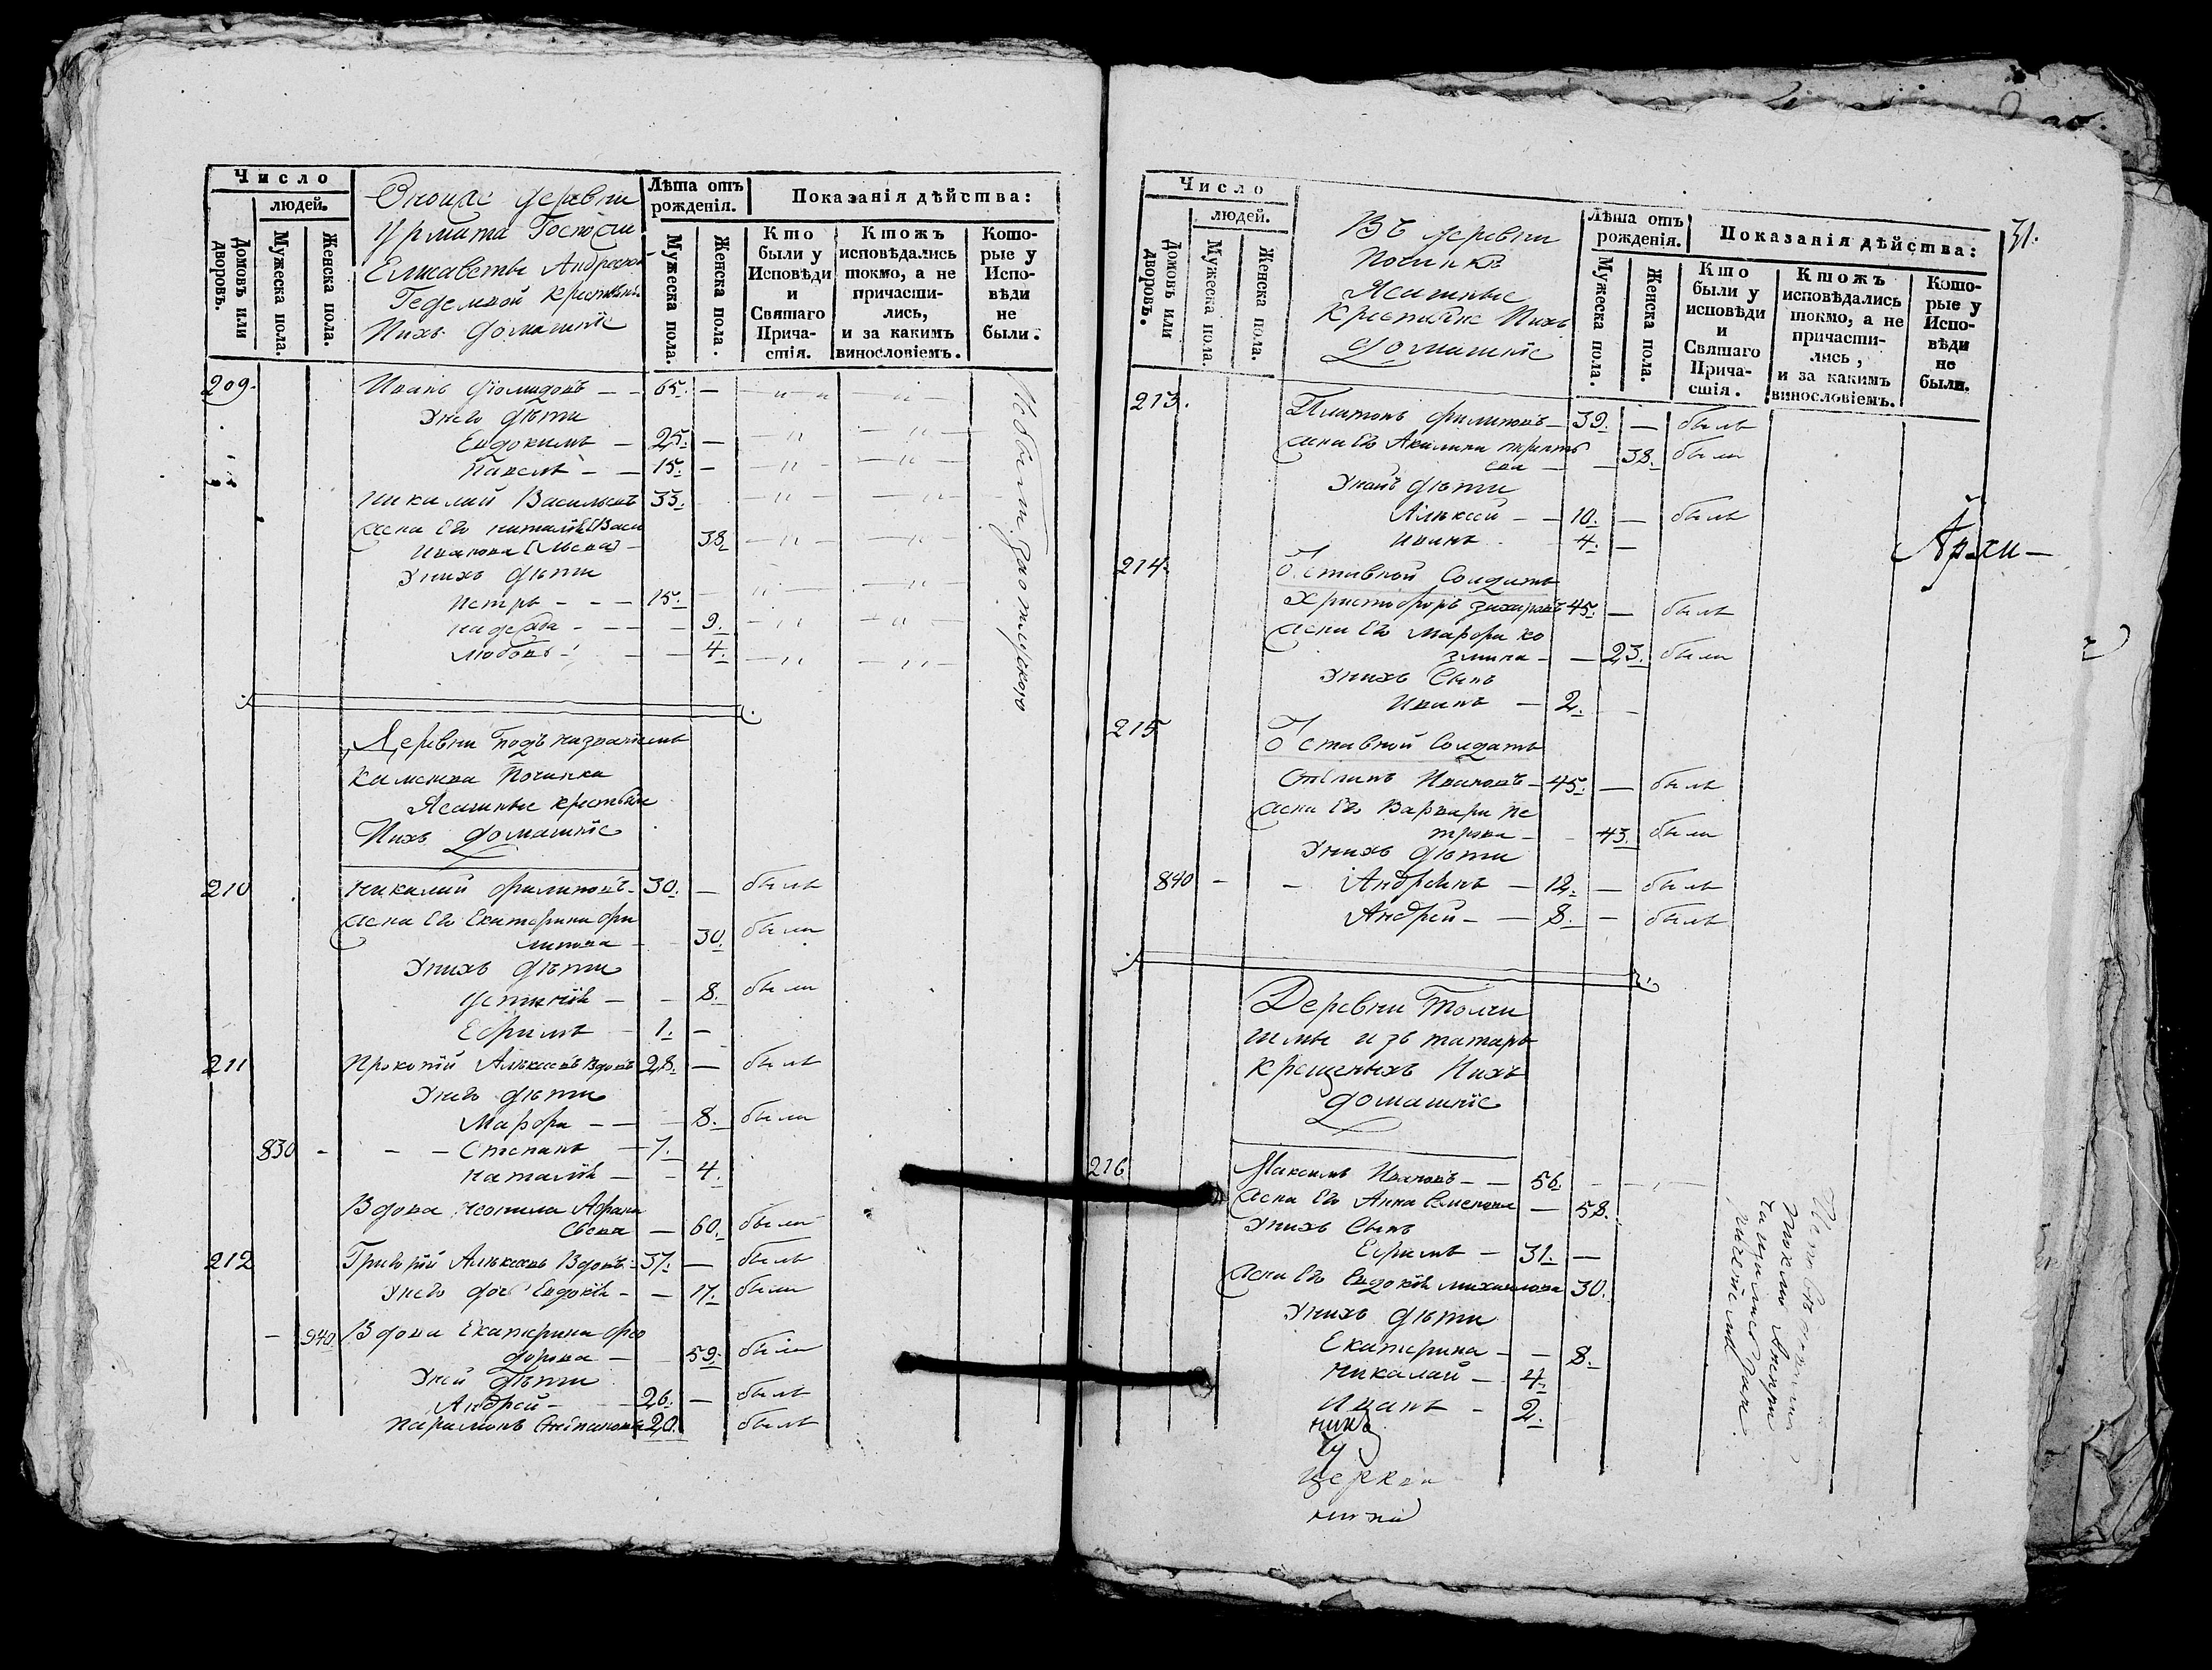 Число
людей.
Домовъ или дворовъ.
Мужеска пола.
Женска пола.
деревни
Урмата Госпожи
Елисаветы Андреевой
крестьяне
Ихъ домашніе
Лѣта отъ рожденія.
Мужеска пола.
Женска пола.
Показанія дѣйства:
Кто были у Исповѣди и Святаго Причастія.
Ктожъ исповѣдались токмо, а не причастились, и за какимъ винословіемъ.
Которые у Исповѣди не были.
209. Иванъ — 65. —
Унего дѣти
Евдокимъ — 25. —
Павелъ — 15. —
Николай Васильевъ 33.
Жена Его Наталія
Иванова — 38.
Унихъ дѣти
Петръ — 15.
Надежда — 9.
Любовь — 4.
Не были за отлучкою
Деревни подъ названіемъ
Починка
Ясашные крестьяне
Ихъ домашніе
210 Николай Филиповъ — 30. — былъ
Жена Его Екатерина Фи
липова — 30. была
Унихъ дѣти
Устинія — 8. была
Ефимъ 1. —
211 Прокопій Алексѣевъ Вдовъ 28. — былъ
Унего дѣти
Марфа — 8. была
830 — Степанъ — 7.
Наталія — 4.
Вдова Афана
сьева — 60. была
212 Григорій Алексѣевъ Вдовъ — 37. — былъ
Унего дочь Евдокія — 17. была
940 Вдова Екатерина Фео
дорова — 59. была
Уней дѣти
Андрей — 26. — былъ
Парамонъ Степановъ 20. былъ
31.
Число
людей.
Домовъ или дворовъ.
Мужеска пола.
Женска пола.
Въ деревни
Починкѣ
Ясашные
Крестьяне Ихъ
домашніе
Лѣта отъ рожденія.
Мужеска пола.
Женска пола.
Показанія дѣйства:
Кто были у исповѣди и Святаго Причастія.
Ктожъ исповѣдались токмо, а не причастились, и за какимъ винословіемъ.
Которые у Исповѣди не были.
213. Платонъ Филиповъ — 39. — былъ
Жена Его Акилина
ева — 38. была
Унихъ дѣти
Алексѣй — 10. — былъ
Иванъ 4. —
Архи—
214. Отставной Солдатъ
Христофоръ Захаровъ 45. — былъ
Жена Его Марфа Ко
змина — 23. была
Унихъ Сынъ
Иванъ — 2. —
215 Отставной Солдатъ
Ивановъ — 45. — былъ
Жена Его Варвара Пе
трова — 43. была
Унихъ дѣти
840 — — Андреянъ — 12. — былъ
Андрей — 8. — былъ
Деревни Толчи
шмы изъ татаръ
крещеныхъ Ихъ
домашніе
216 Максимъ Ивановъ — 56.
Жена Его Анна Семенова — 58.
Унихъ Сынъ
Ефимъ — 31. —
Жена Его Евдокія Михаилова 30.
Унихъ дѣти
Екатерина — 8.
Николай — 4.
Иванъ — 2.
церкви